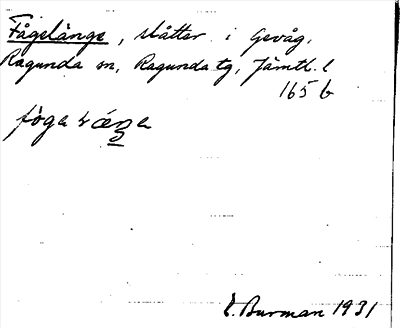 Fågelänge, slåtter i Gevåg,
Ragunda sn, Ragunda tg, Jämtl. l
165 b
E. Burman 1931